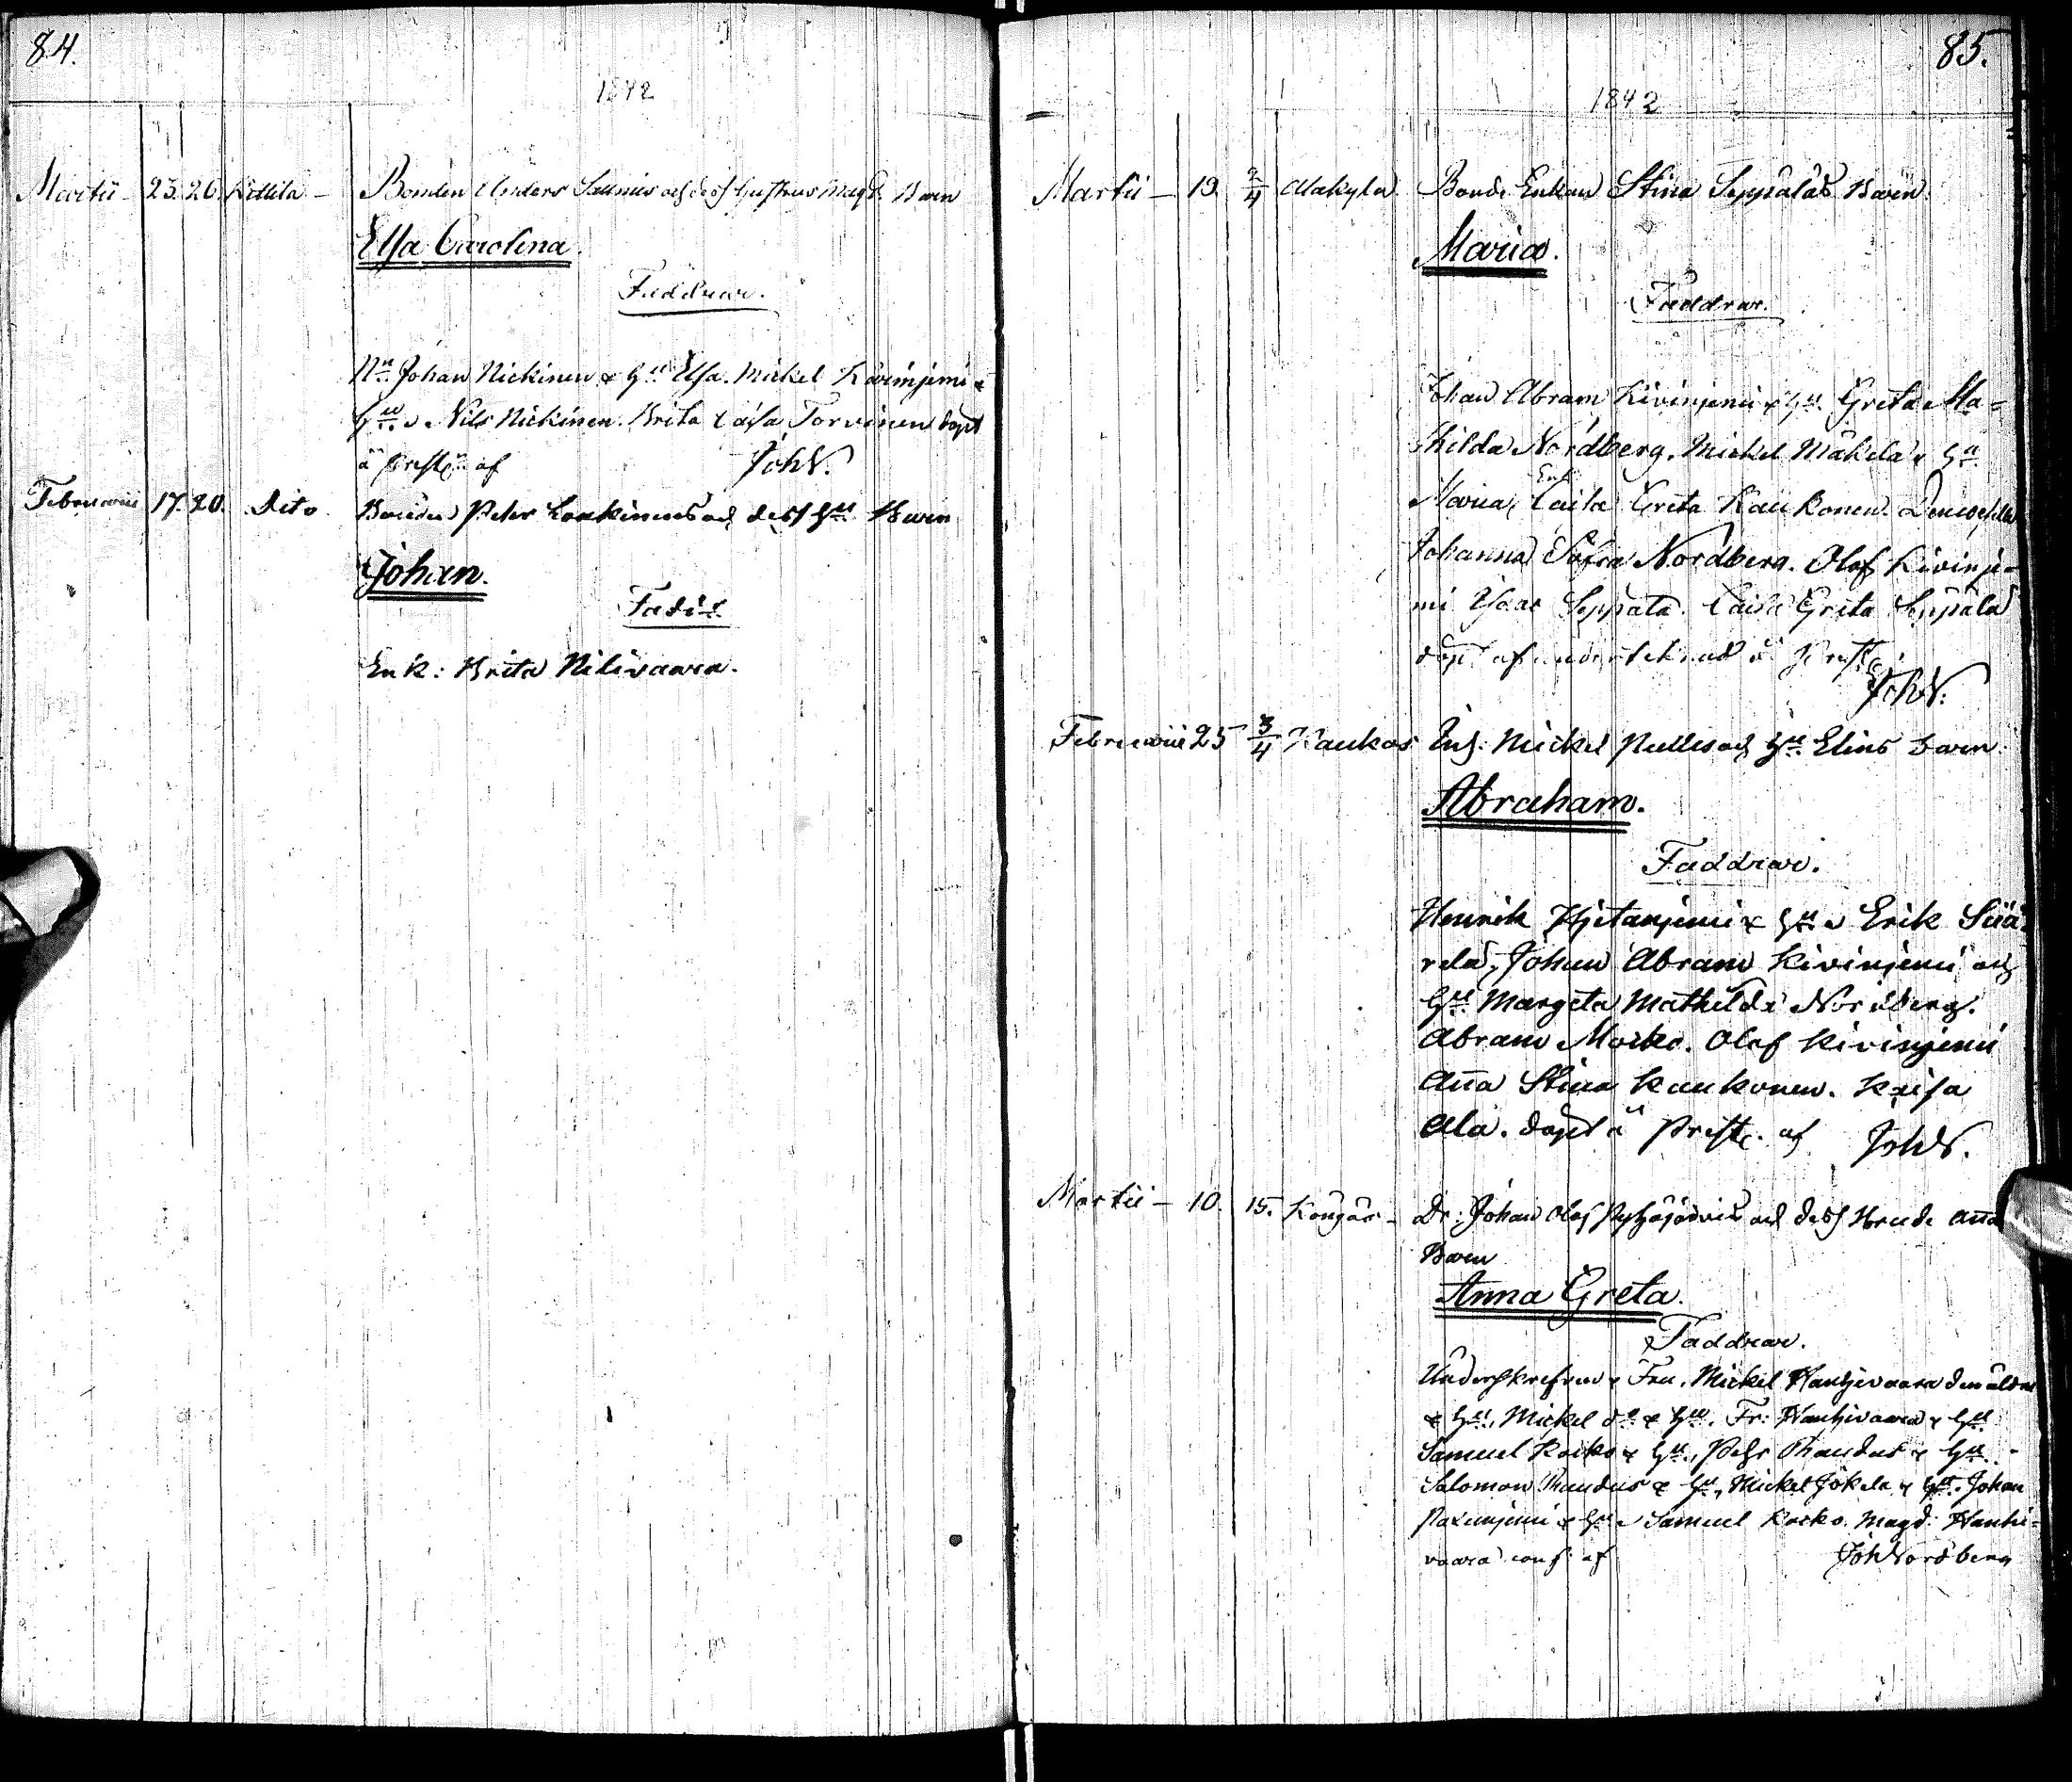 84.
1842
Martii - 25. 26. Kittila - Bonden Anders Salmis och dess hustrus Magd. Barn
Elsa Carolina.
Faddrar.
Nn Johan Nickinen & hu Elsa. Mickel Kivinjemi &
hu Nils Nickinen. Brita Caisa Torvinen döpt
å Prestg af JohN.
Februarii 17. 20. Dito Bonden Peter och dess hu Barn
Johan.
Fadd
Enk: Brita Nilivaara.
85.
1842
Martii - 19. 2/4 Alakyla Bonde Enkan Stina Seppäläs Barn
Maria.
Faddrar.
Johan Abram Kivinjemi & hu Greta Ma=
thilda Nordberg. Mickel Mäkela & hu
Maria, Enk Caisa Greta Kaukonen.
Johanna Sofia Nordberg. Olof Kivinje-
mi Isaac Seppälä. Caisa Greta Seppälä
döpt af underteknad å Prestg
JohN.
Februarii 25 3/4 Kaukos Inh. Mickel Pulles och hu Elins barn
Abraham.
Faddrar.
Henrik Hjetanjemi & hu Erik Sää
relä, Johan Abram Kivinjemi och
hu Margeta Mathilda Nordberg.
Abram Olof Kivinjemi
Anna Stina Kaukonen. Kaisa
Ala. döpt å Prestg. af JohN.
Martii - 10. 15. Köngäs - Dr: Johan Olof Pyhäjärvis och dess Hrude Anna
Barn
Anna Greta.
Faddrar.
Underskrefven & Fru, Mickel Hanhivaara den äldre
& hu, Mickel do & hu. Fr: Hanhivaara & hu
Samuel Kocko & hu, Pehr Thaudus & hu -
Salomon Thaudus & hu, Mickel Jokela & hu Johan
hu Samuel Kocko. Magd: Hanhi=
vaara af JohNordberg